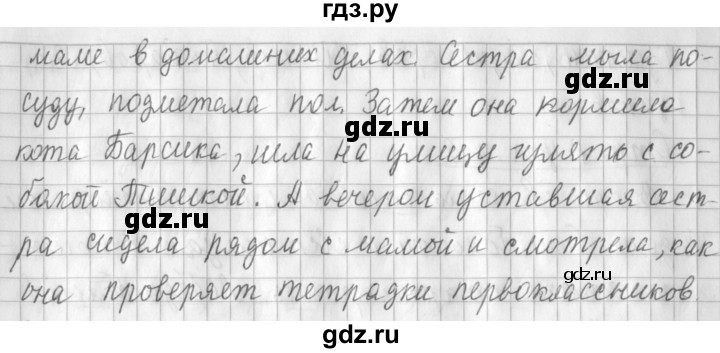 гдз.ру
маме в домашних делах. Сестра мыла по-
gdz.ru
суду, подметала пол. Затем она кормила
gdz.ru
кота Барсика, шла на улицу гулять с со-
gdz.ru
бакой Тишкой. А вечером уставшая сест-
gdz.ru
ра сидела рядом с мамой и смотрела, как
gdz.ru
она проверяет тетрадки первоклассников
gdz.ru